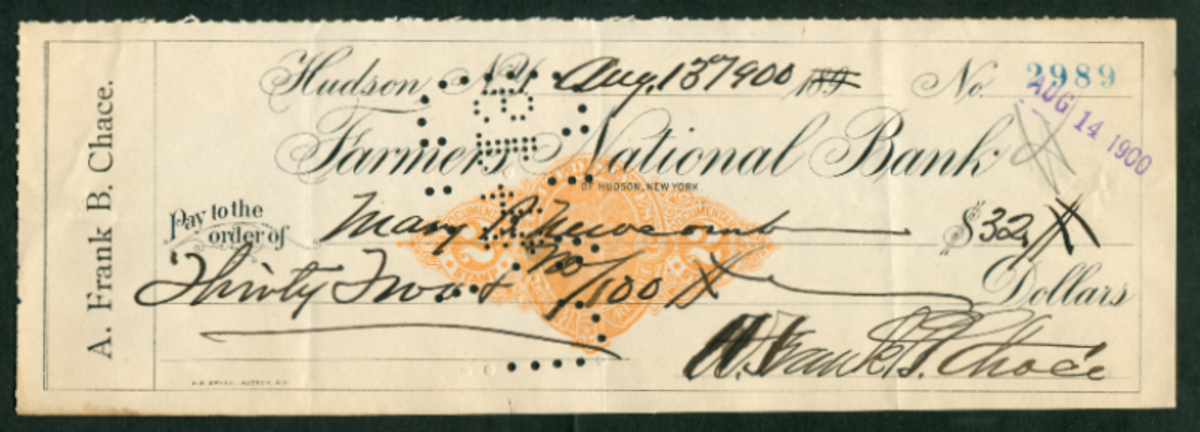 A. Frank B. Chace.
Hudson, N.Y. Aug. 13th 1900 189 No. 2989
AUG 14 1900
Farmers National Bank
OF HUDSON, NEW YORK.
Pay to the order of Mary Newcomb $32
Thirty Two & No/100 Dollars
A. Frank B. Chace
DOCUMENTARY
2 2